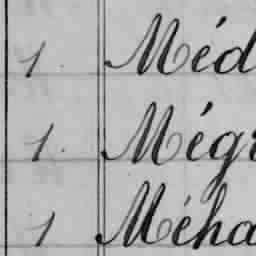 1. Méd
1. Mégr
1 Méha